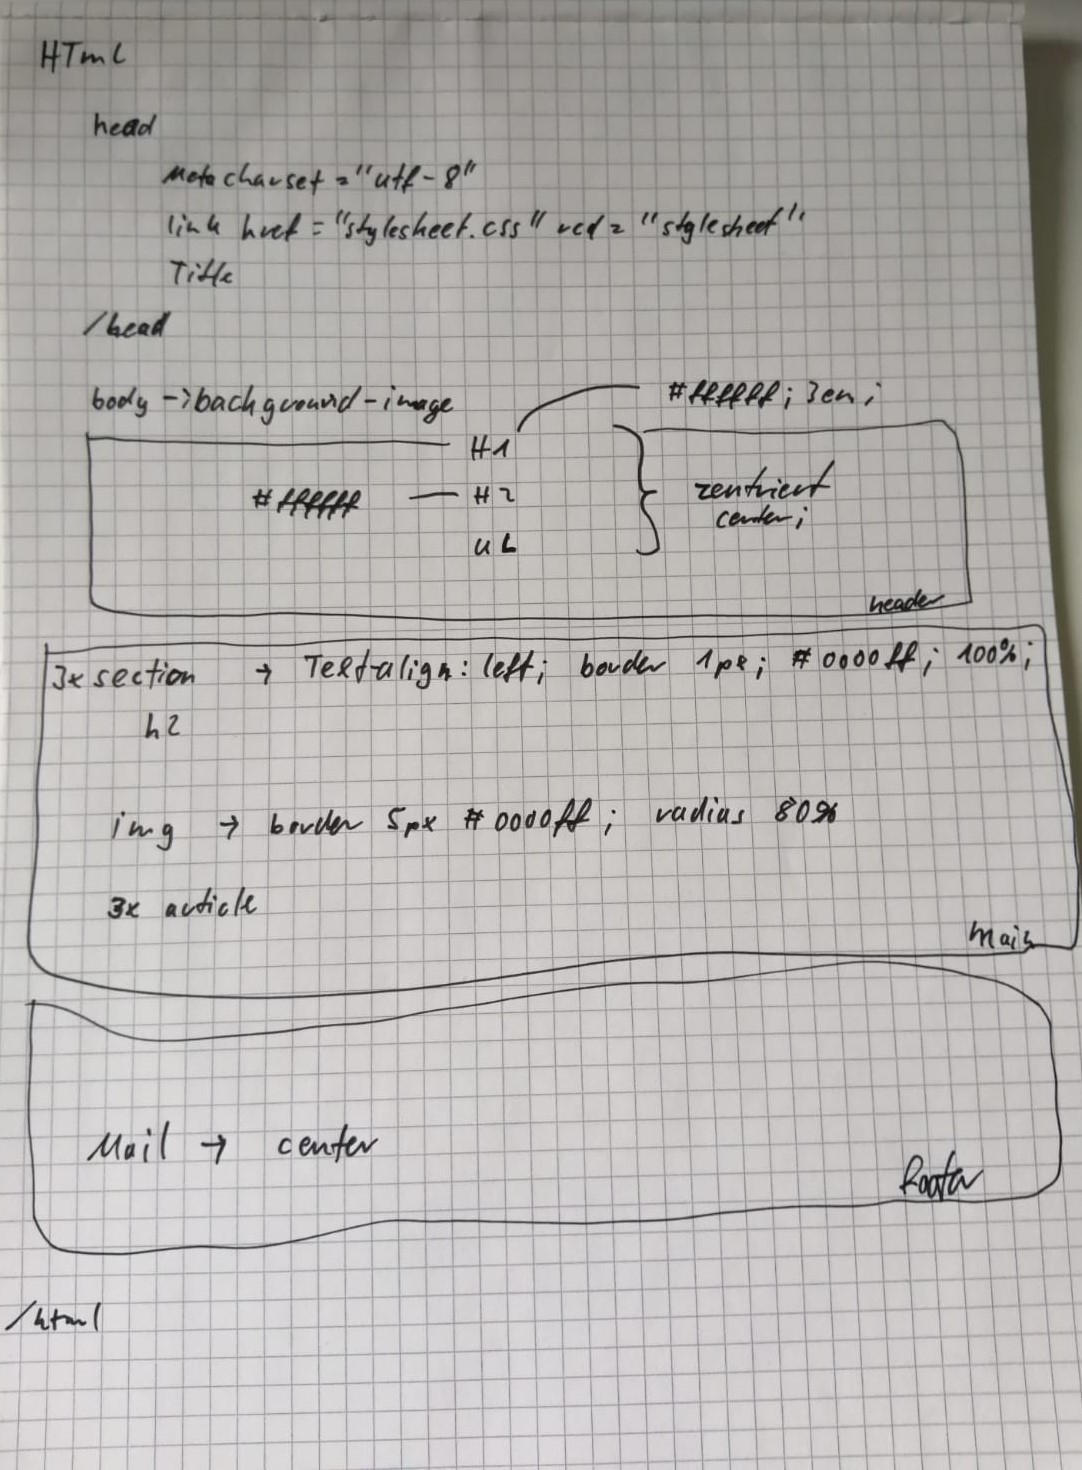 HTmL
head
Meta charset = "utf-8"
link href = "stylesheet.css" rel = "stylesheet"
Title
/head
body -> background-image
#ffffff; 3em;
H1
#ffffff — H2
zentriert
center;
UL
header
3x section → Text-align: left; border 1px; #0000ff; 100%;
h2
img → border 5px #0000ff; radius 80%
3x article
Main
Mail → center
footer
/html